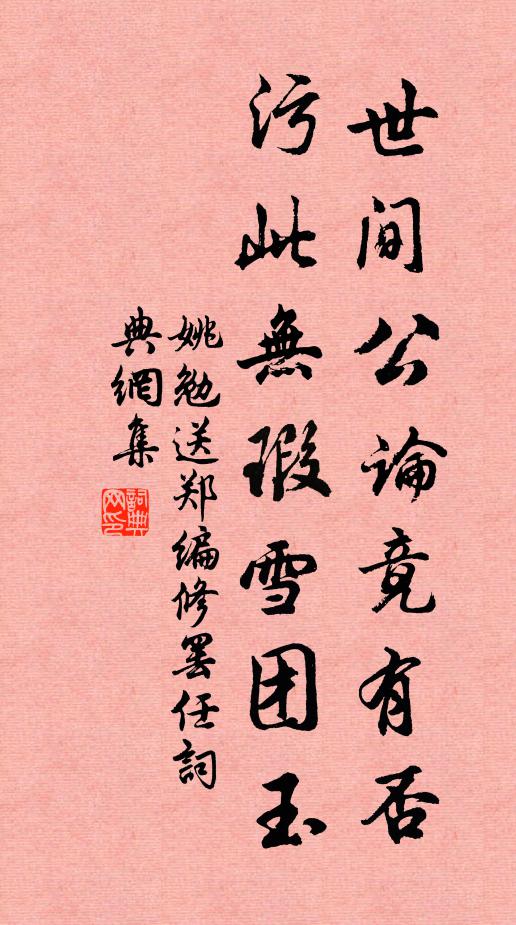 世间公论竟有否
污此無瑕雪团玉
姚勉送郑编修罢任詞
典網集
詞典
网印